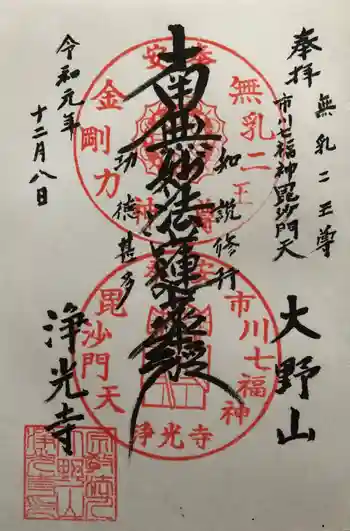 奉拝
無乳二王尊
市川七福神毘沙門天
大野山
南無妙法蓮華経
如説修行
功徳甚多
令和元年
十二月八日
浄光寺
無乳二王尊
金剛力
市川七福神
毘沙門天
浄光寺